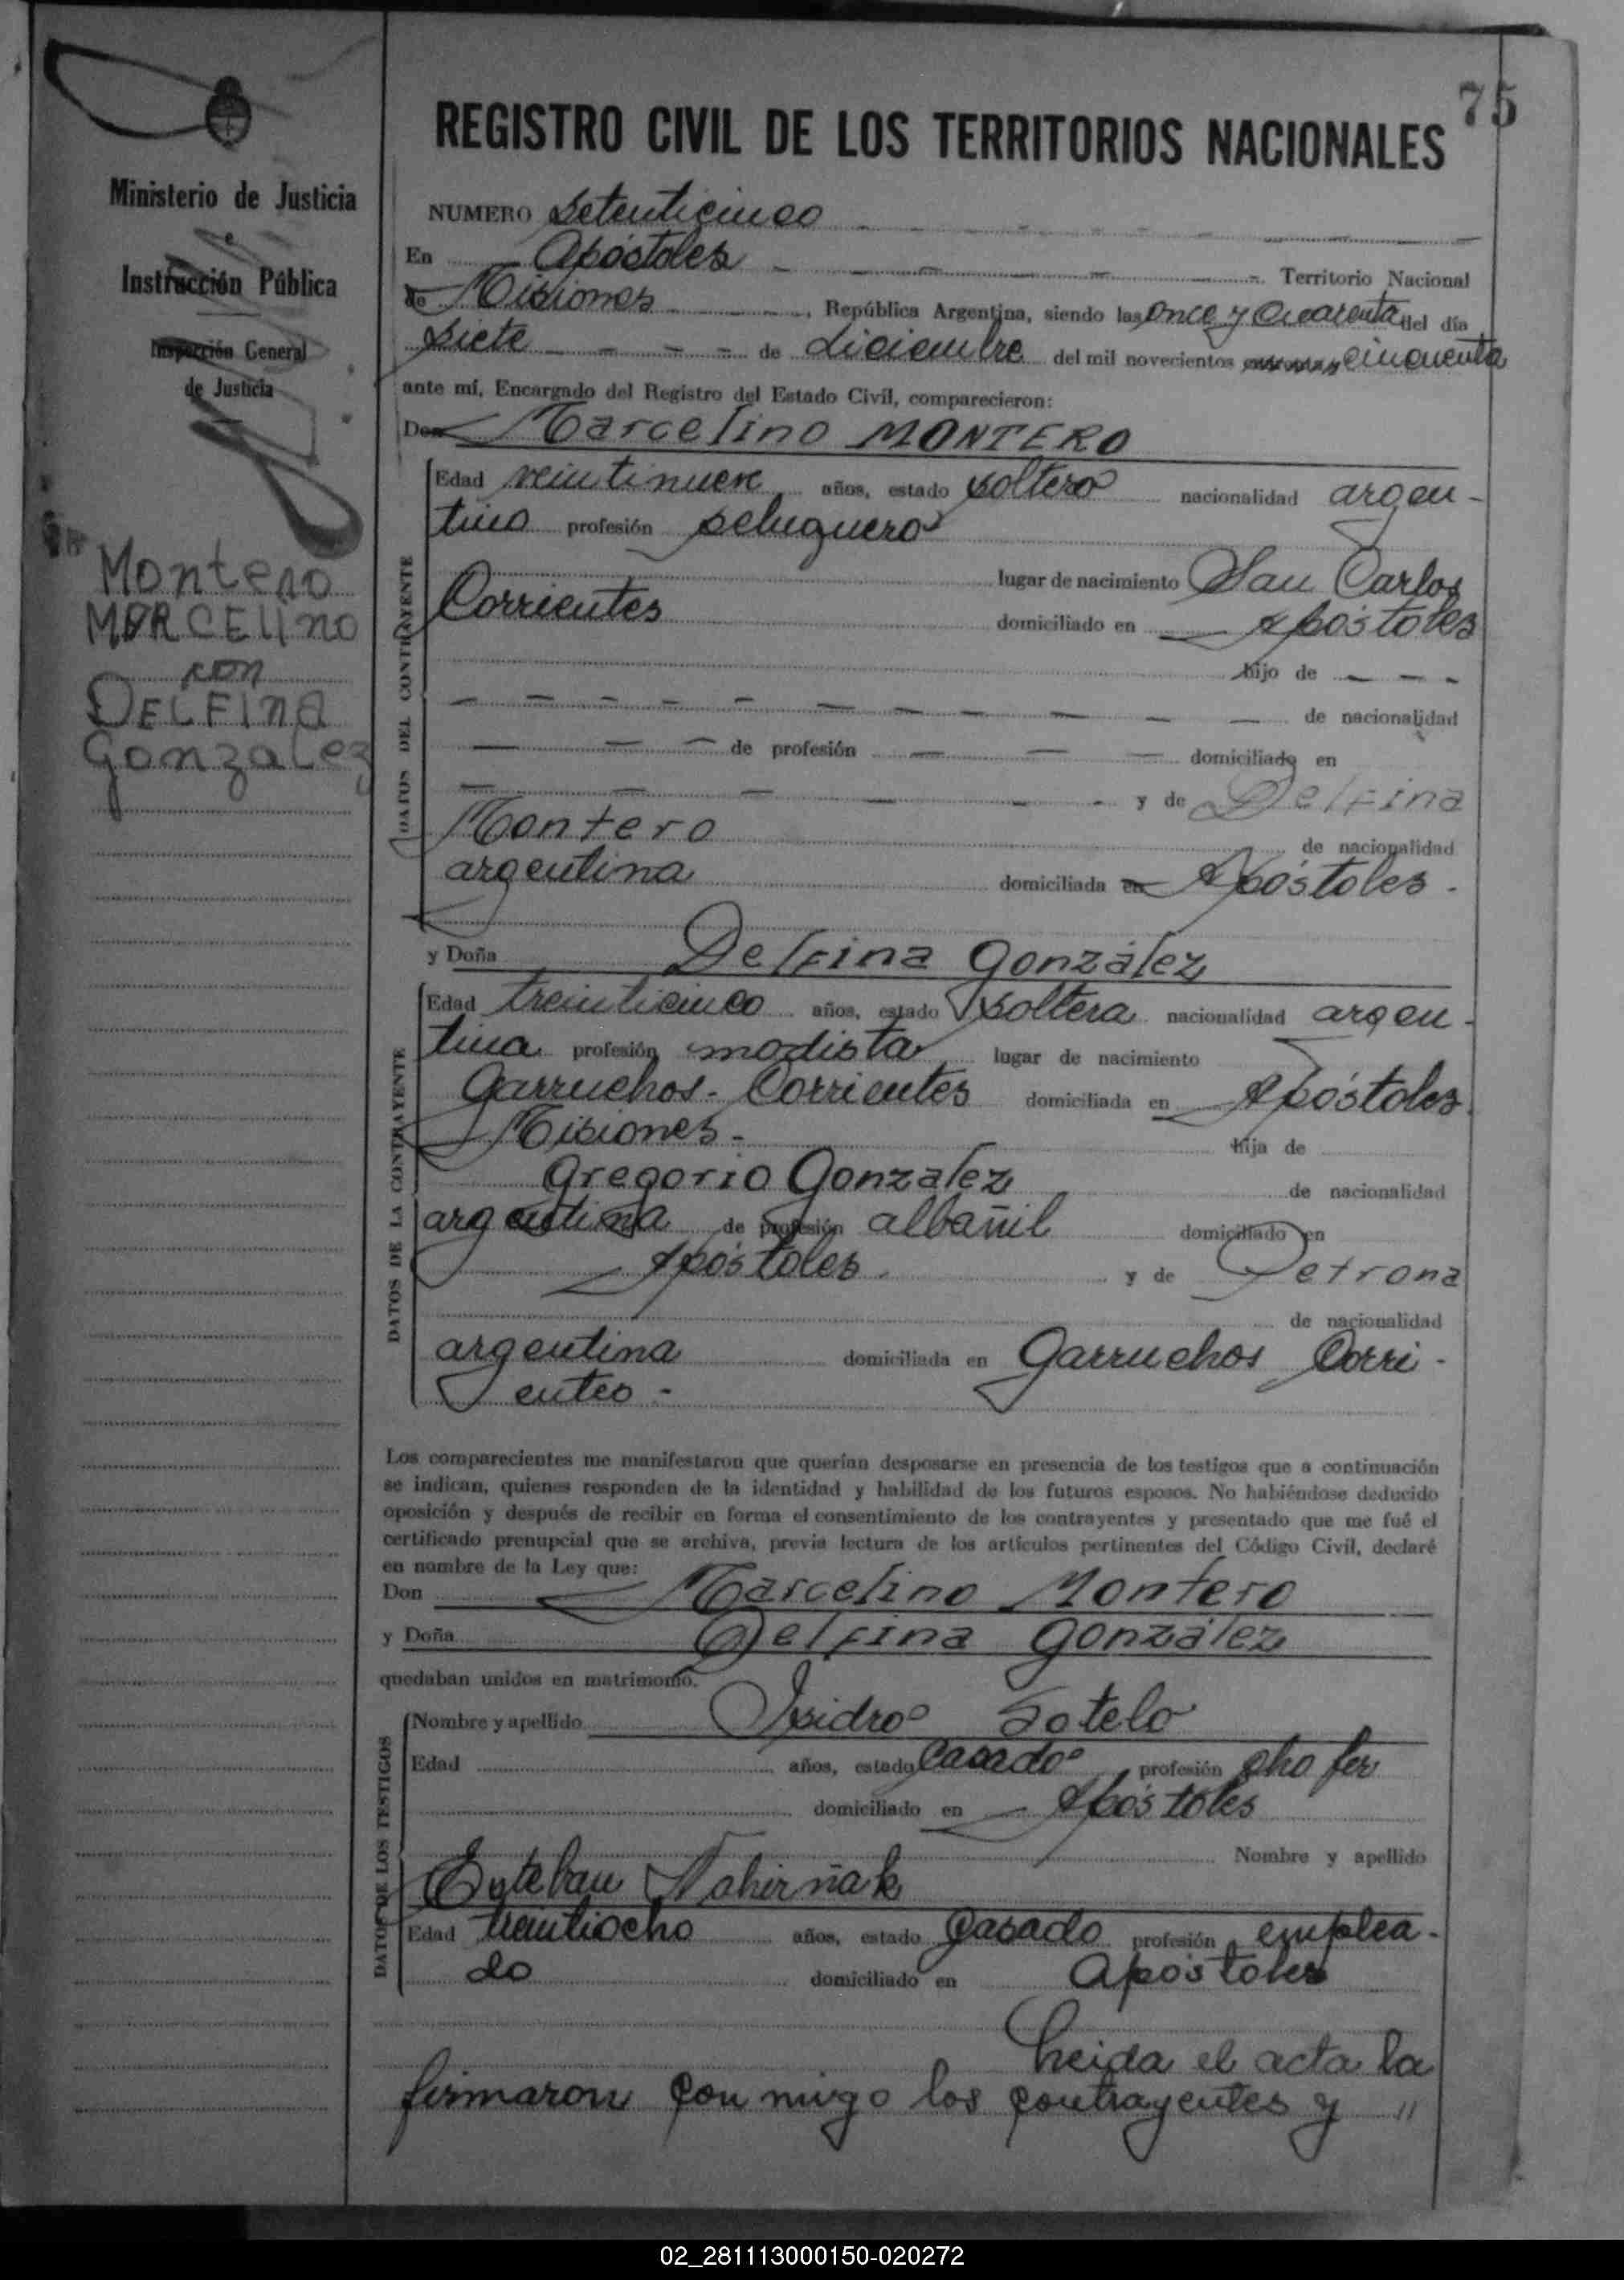 75
REGISTRO CIVIL DE LOS TERRITORIOS NACIONALES
Ministerio de Justicia
e
Instrucción Pública
Inspección General
de Justicia
Montero
MARCELINO
con
DELFINA
Gonzalez
NUMERO Setenticinco
En Apóstoles Territorio Nacional
de Misiones, República Argentina, siendo las once y cuarenta del día
siete de diciembre del mil novecientos cincuenta
ante mí, Encargado del Registro del Estado Civil, comparecieron:
Don Marcelino MONTERO
DATOS DEL CONTRAYENTE
Edad veintinueve años, estado soltero nacionalidad argen-
tino profesión peluquero
lugar de nacimiento San Carlos
Corrientes domiciliado en Apóstoles
hijo de
de nacionalidad
de profesión domiciliado en
y de Delfina
Montero de nacionalidad
argentina domiciliada en Apóstoles.
y Doña Delfina González
DATOS DE LA CONTRAYENTE
Edad treinticinco años, estado soltera nacionalidad argen-
tina profesión modista lugar de nacimiento
Garruchos - Corrientes domiciliada en Apóstoles
Misiones- hija de
Gregorio Gonzalez de nacionalidad
argentina de profesión albañil domiciliado en
Apóstoles. y de Petrona
de nacionalidad
argentina domiciliada en Garruchos Corri-
entes-
Los comparecientes me manifestaron que querían desposarse en presencia de los testigos que a continuación
se indican, quienes responden de la identidad y habilidad de los futuros esposos. No habiéndose deducido
oposición y después de recibir en forma el consentimiento de los contrayentes y presentado que me fué el
certificado prenupcial que se archiva, previa lectura de los artículos pertinentes del Código Civil, declaré
en nombre de la Ley que:
Don Marcelino Montero
y Doña Delfina González
quedaban unidos en matrimonio.
DATOS DE LOS TESTIGOS
Nombre y apellido Isidro Sotelo
Edad años, estado Casado profesión chofer
domiciliado en Apóstoles
Nombre y apellido
Esteban Nahirñak
Edad treintiocho años, estado casado profesión emplea-
do domiciliado en Apóstoles
Leida el acta la
firmaron con migo los contrayentes y "
02_281113000150-020272